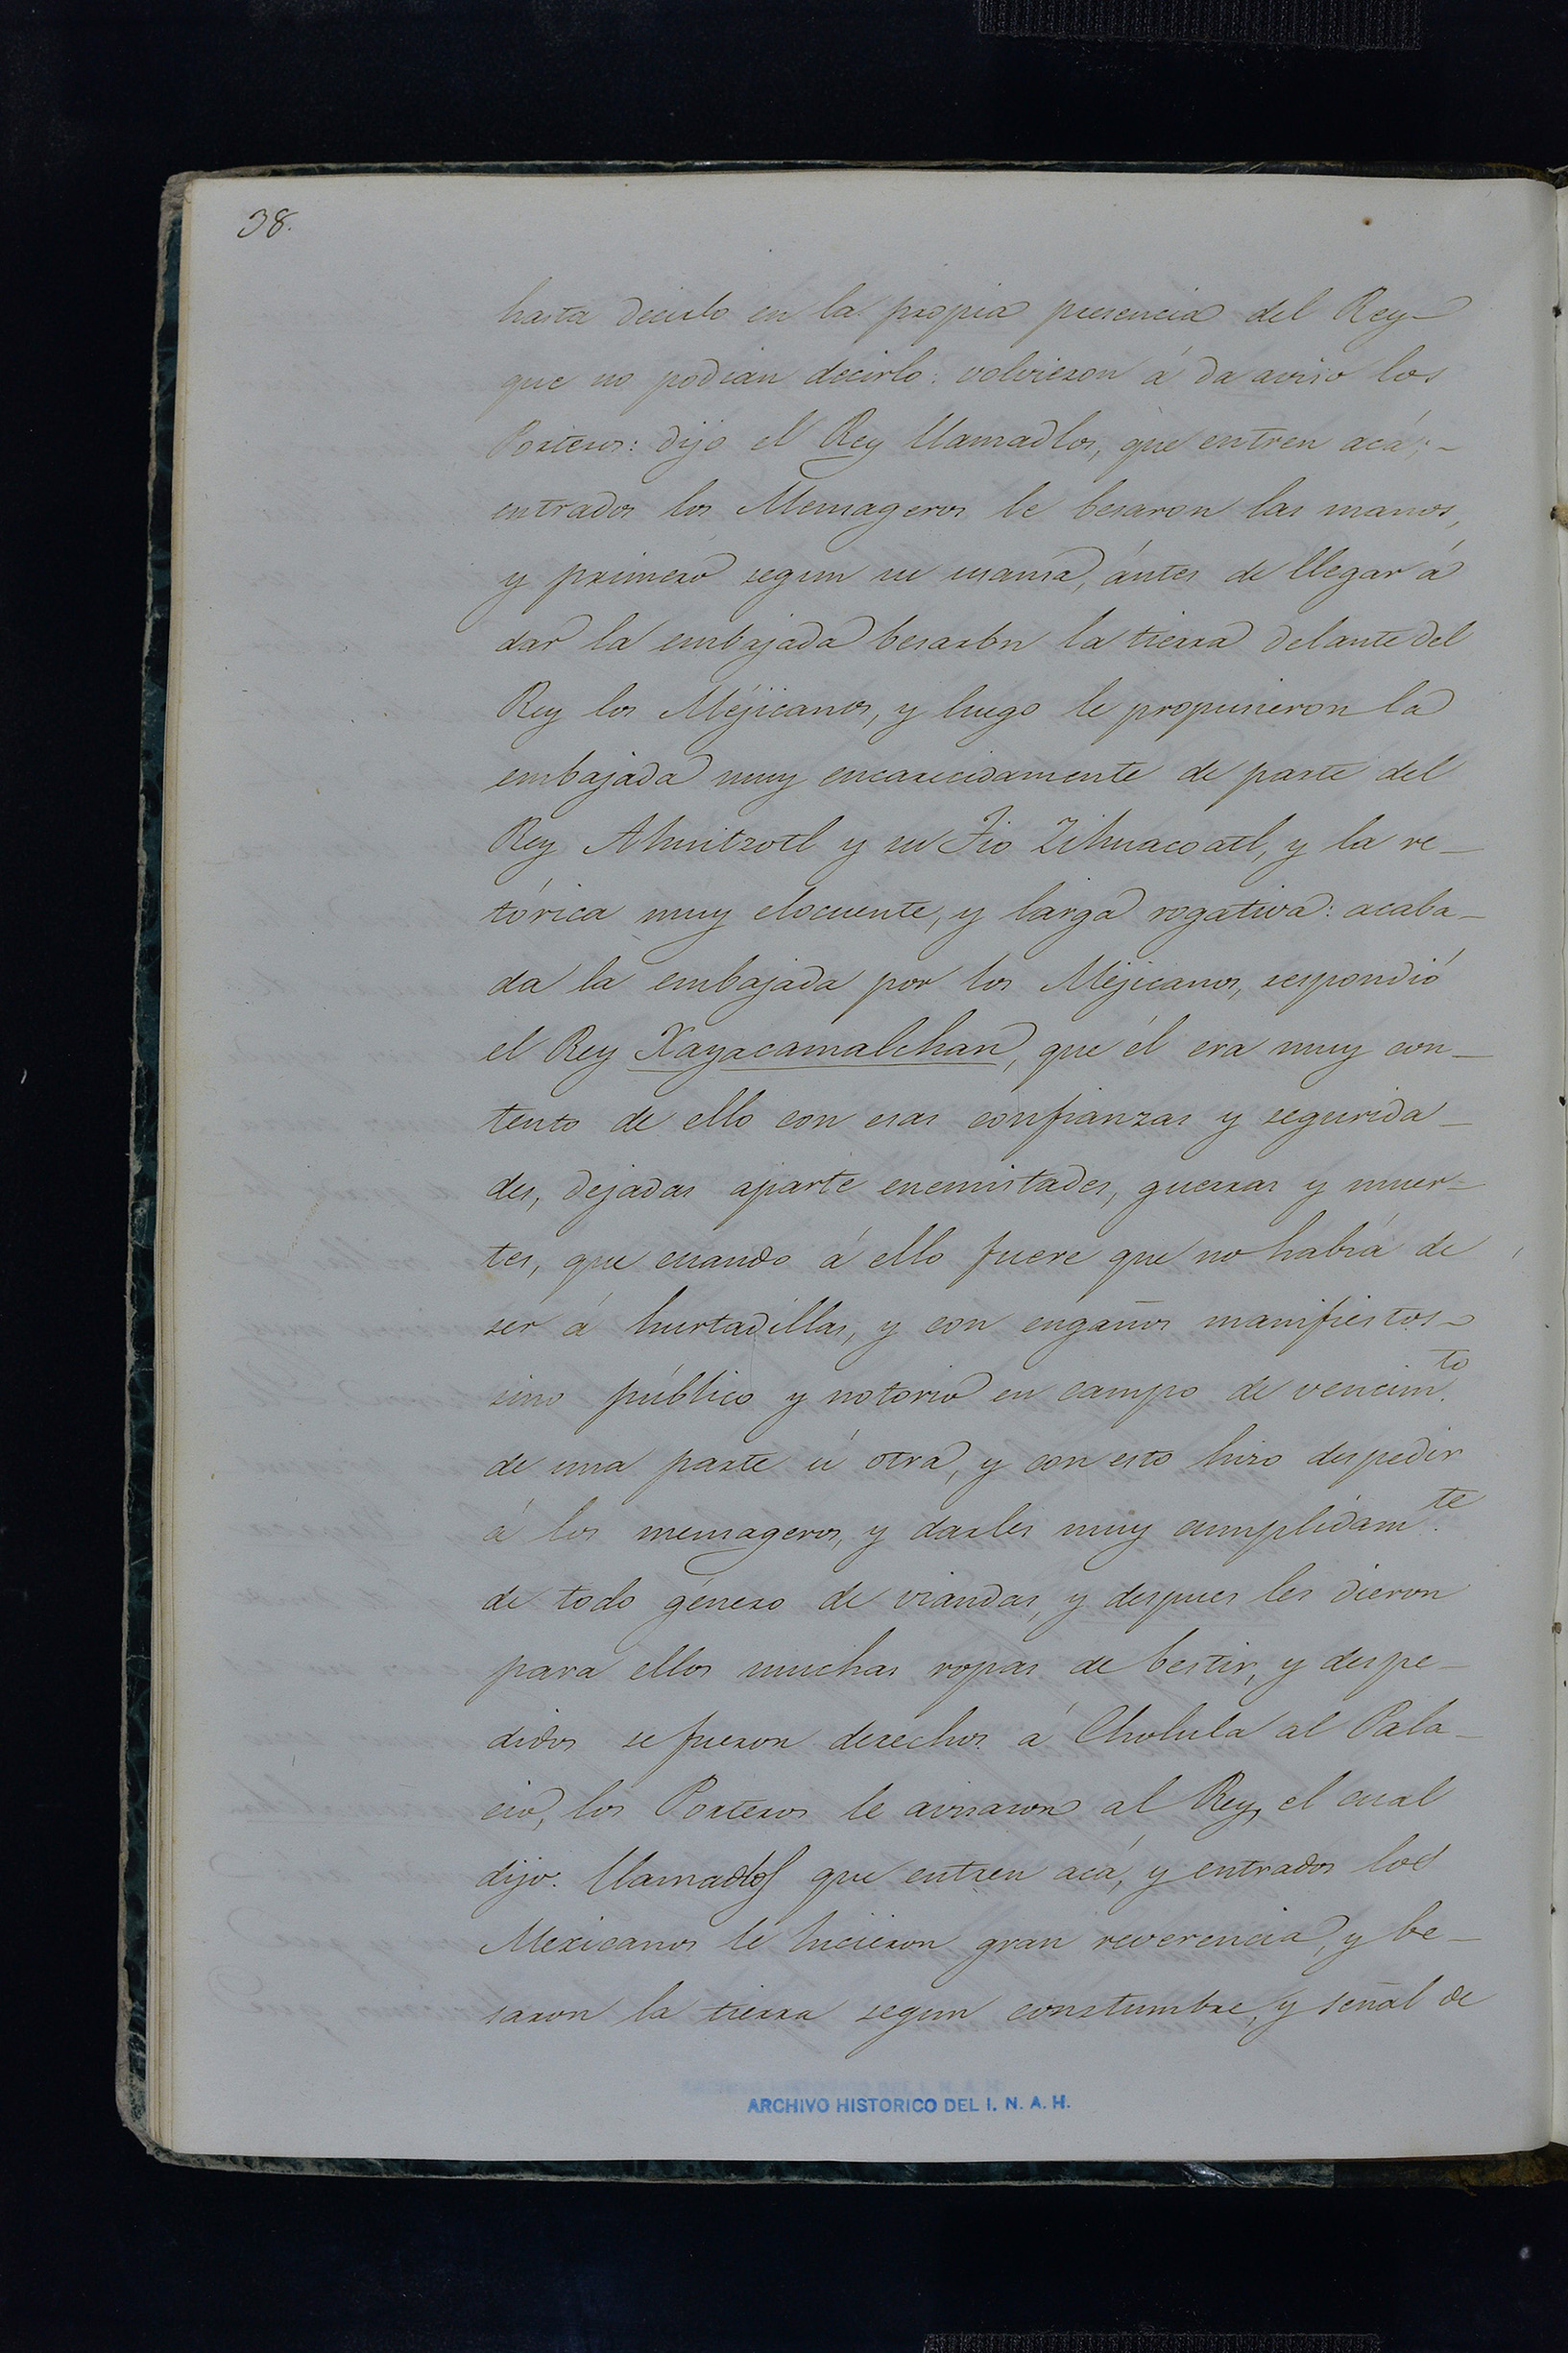 38.
hasta decirlo en la propia presencia del Rey
que no podian decirlo: volvieron á da aviso los
Porteros: dijo el Rey llamadlos, que entren acá;-
entrados los Mensageros le besaron las manos,
y primero segun su usanza, ántes de llegar á
dar la embajada besaron la tierra delante del
Rey los Méjicanos, y luego le propusieron la
embajada muy encarecidamente de parte del
Rey Ahuitzotl y su Tio Zihuacoatl, y la re-
tórica muy elocuente, y larga rogativa: acaba-
da la embajada por los Méjicanos, respondió
el Rey Xayacamalchan, que él era muy con-
tento de ello con esas confianzas y segurida-
des, dejadas aparte enemistades, guerras y muer-
tes, que cuando á ello fuere que no habia de
ser á hurtadillas, y con engaños manifiestos-
sino público y notorio en campo de vencim.to
de una parte ú otra, y con esto hizo despedir
á los mensageros, y darles muy cumplidam.te
de todo género de viandas, y despues les dieron
para ellos muchas ropas de bestir, y despe-
didos se fueron derechos á Cholula al Pala-
cio, los Porteros le avisaron al Rey, el cual
dijo: llamadlos que entren acá, y entrados los
Mexicanos le hicieron gran reverencia, y be-
saron la tierra segun constumbre, y señal de
ARCHIVO HISTORICO DEL I. N. A. H.